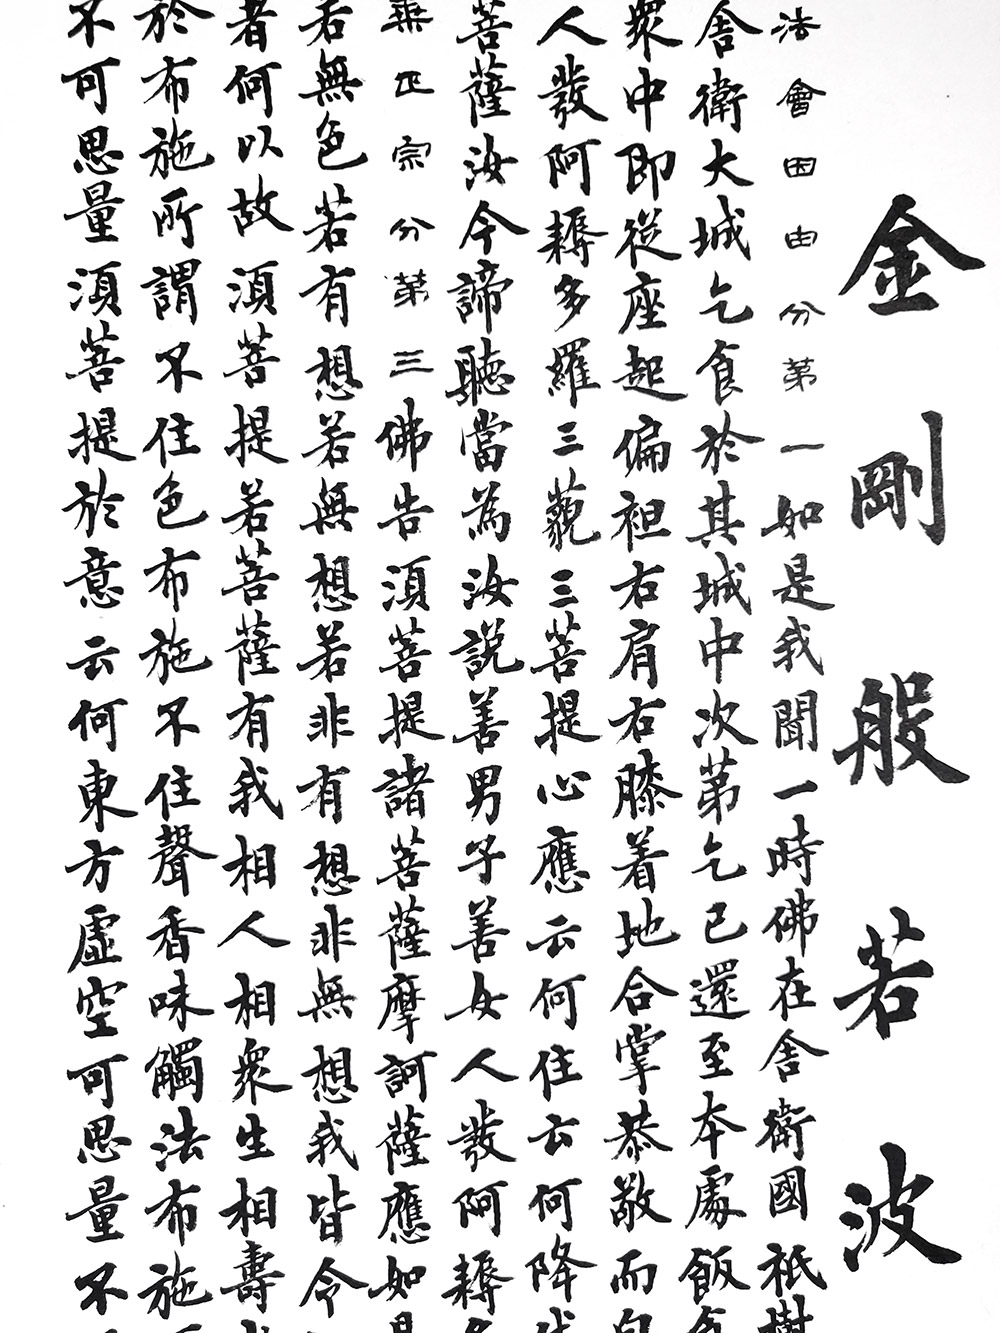 金剛般若波
法會因由分第一如是我聞一時佛在舍衛國祇樹
舍衛大城乞食於其城中次第乞已還至本處飯食
眾中即從座起偏袒右肩右膝着地合掌恭敬而白
人發阿耨多羅三藐三菩提心應云何住云何降伏
菩薩汝今諦聽當為汝說善男子善女人發阿耨多
乘正宗分第三佛告須菩提諸菩薩摩訶薩應如是
若無色若有想若無想若非有想非無想我皆令
者何以故須菩提若菩薩有我相人相眾生相壽
於布施所謂不住色布施不住聲香味觸法布施
不可思量須菩提於意云何東方虛空可思量不